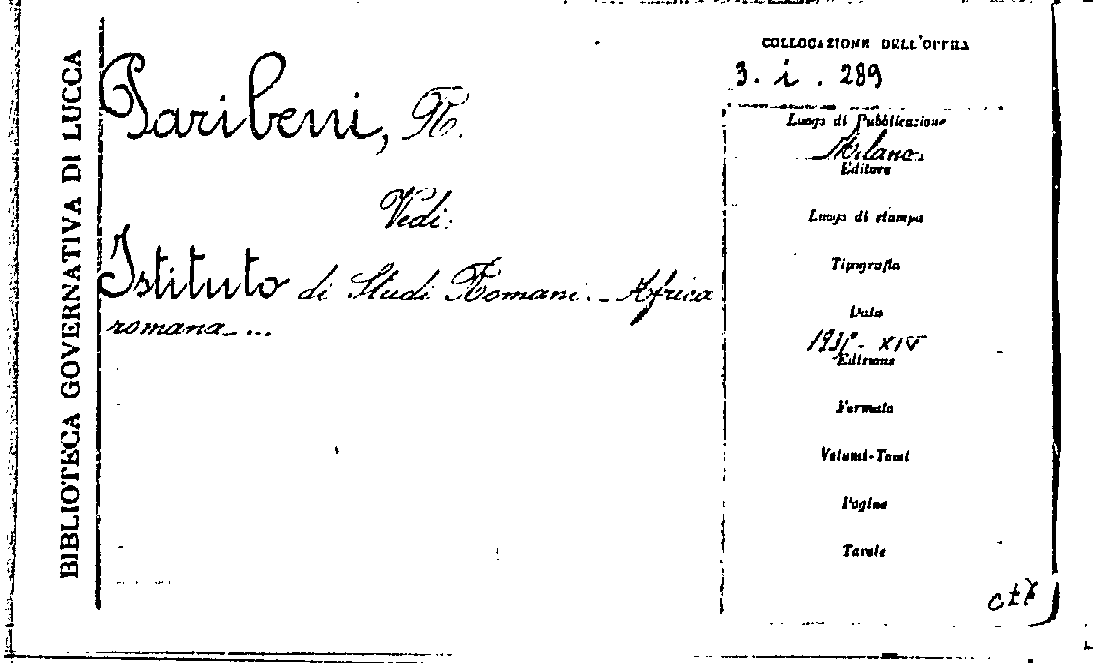 BIBLIOTECA GOVERNATIVA DI LUCCA
Paribeni, R.
Vedi:
Istituto di Studi Romani. - Africa
romana - ...
COLLOCAZIONE DELL'OPERA
3. i. 289
Luogo di Pubblicazione
Milano
Editore
Luogo di stampa
Tipografia
Data
XIV
Edizione
Formato
Volumi-Tomi
Pagine
Tavole